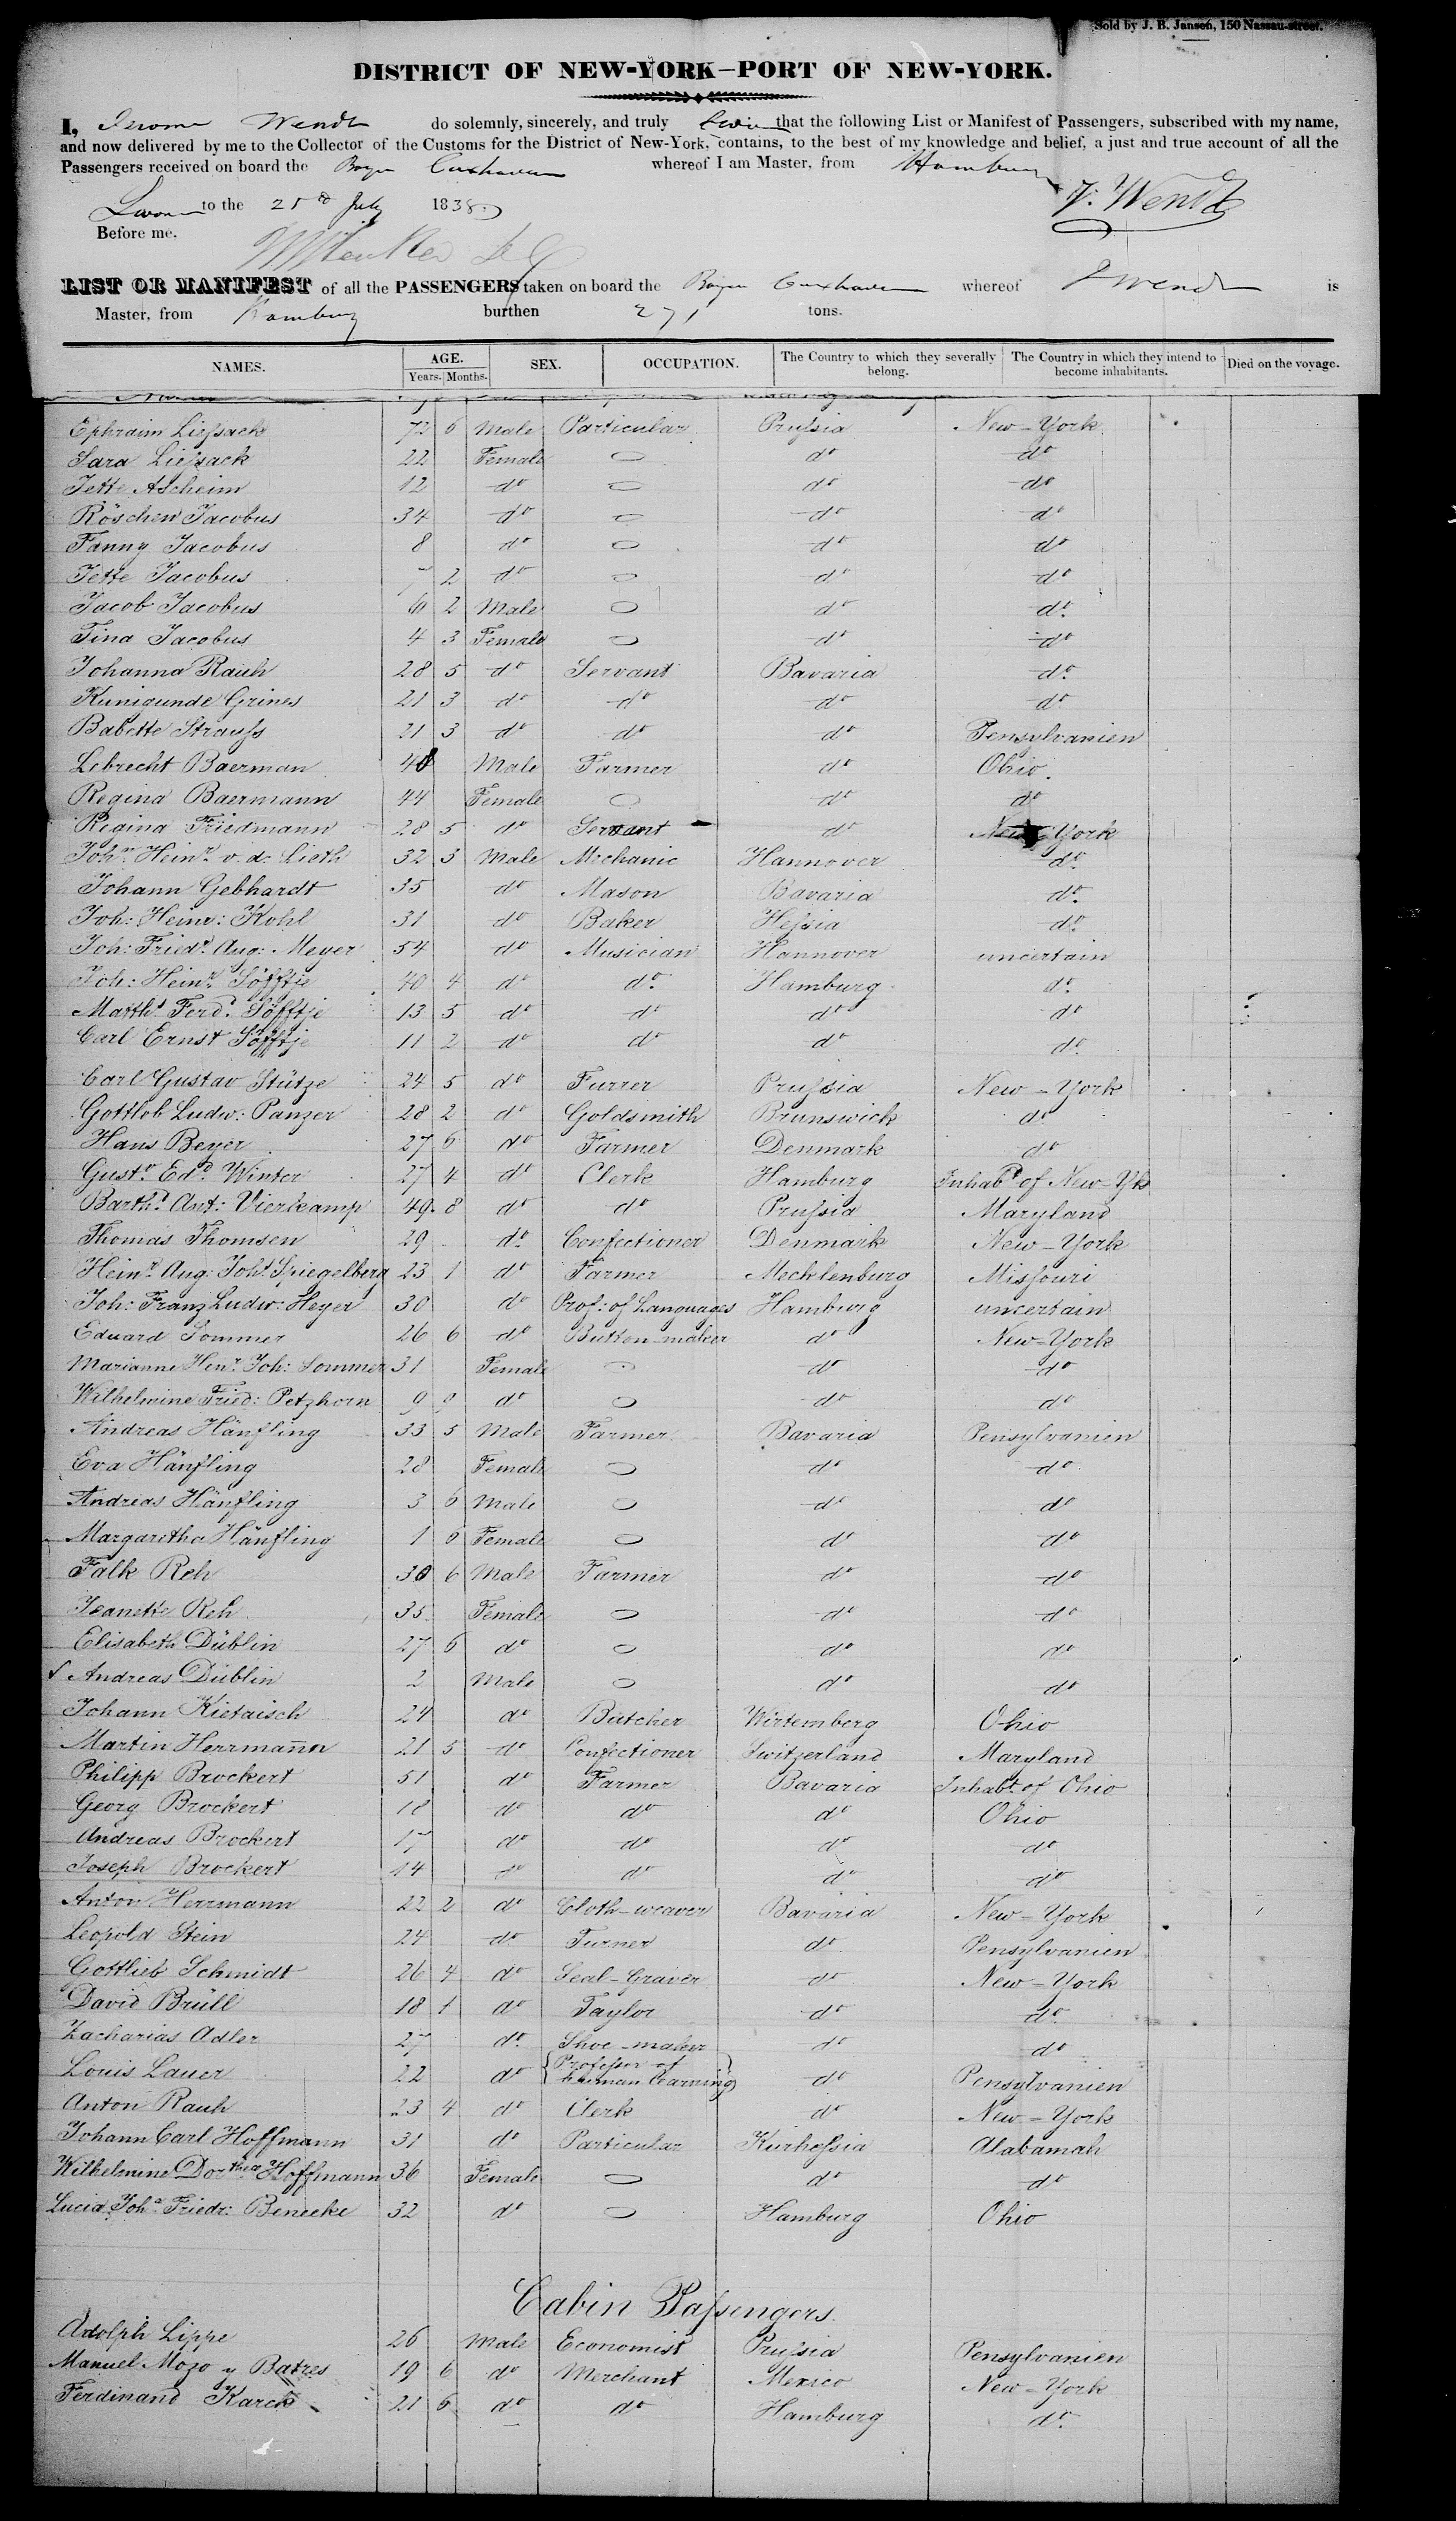 Sold by J. B. Jansen, 150 Nassau-street.
DISTRICT OF NEW-YORK—PORT OF NEW-YORK.
I, Wendt do solemnly, sincerely, and truly that the following List or Manifest of Passengers, subscribed with my name,
and now delivered by me to the Collector of the Customs for the District of New-York, contains, to the best of my knowledge and belief, a just and true account of all the
Passengers received on board the Cuxhaven whereof I am Master, from Hamburg
to the 25 July 1838 J. Wendt
Before me,
LIST OR MANIFEST of all the PASSENGERS taken on board the Cuxhaven whereof J Wendt is
Master, from Hamburg burthen 271 tons.
NAMES. AGE. SEX. OCCUPATION. The Country to which they severally belong. The Country in which they intend to become inhabitants. Died on the voyage.
Years. Months.
Ephraim Liessack 72 6 Male Particular Prussia New-York
Sara Liessack 22 Female do do
Jette Ascheim 12 do do do
Röschen Jacobus 34 do do do
Fanny Jacobus 8 do do do
Jette Jacobus 7 2 do do do
Jacob Jacobus 6 2 Male do do
Tina Jacobus 4 3 Female do do
Johanna Rauh 28 5 do Servant Bavaria do
Kunigunde Grines 21 3 do do do do
Babette Strauss 21 3 do do do Pensylvanien
Lebrecht Baerman Male Farmer do Ohio
Regina Baermann 44 Female do do
Regina Friedmann 28 5 do Servant do New-York
John Heinr v. d. Lieth 32 3 Male Mechanic Hannover do
Johann Gebhardt 35 do Mason Bavaria do
Joh: Heinr: Kohl 31 do Baker Hessia do
Joh: Friedr. Aug: Meyer 54 do Musician Hannover uncertain
Joh: Heinr. Söfftje 40 4 do do Hamburg do
Matths Ferd. Söfftje 13 5 do do do do
Carl Ernst Söfftje 11 2 do do do do
Carl Gustav Stütze 24 5 do Furrer Prussia New-York
Gottlob Ludw: Panzer 28 2 do Goldsmith Brunswick do
Hans Beyer 27 6 do Farmer Denmark do
Gustv Edd Winter 27 4 do Clerk Hamburg Inhabt of New-Yk
Barthd Ant: Vierkamp 49 8 do do Prussia Maryland
Thomas Thomsen 29 do Confectioner Denmark New-York
Heinr Aug: Johs Spiegelberg 23 1 do Farmer Mecklenburg Missouri
Joh: Franz Ludw: Heyer 30 do Prof: of Languages Hamburg uncertain
Eduard Sommer 26 6 do Button-maker do New-York
Marianne Henr Joh: Sommer 31 Female do do
Wilhelmine Fried: Petzhorn 9 9 do do do
Andreas Hänfling 33 5 Male Farmer Bavaria Pensylvanien
Eva Hänfling 28 Female do do
Andreas Hänfling 3 6 Male do do
Margaretha Hänfling 1 6 Female do do
Falk Reh 30 6 Male Farmer do do
Jeanette Reh 35 Female do do
Elisabeth Düblin 27 6 do do do
Andreas Düblin 2 Male do do
Johann Kietaisch 24 do Butcher Wirtemberg Ohio
Martin Herrmann 21 5 do Confectioner Switzerland Maryland
Philipp Brockert 51 do Farmer Bavaria Inhabt of Ohio
Georg Brockert 18 do do do Ohio
Andreas Brockert 17 do do do do
Joseph Brockert 14 do do do do
Anton Herrmann 22 2 do Cloth-weaver Bavaria New-York
Leopold Stein 24 do Turner do Pensylvanien
Gottlieb Schmidt 26 4 do Seal-Graver do New-York
David Brüll 18 1 do Taylor do do
Zacharias Adler 27 do Shoe-maker do do
Louis Lauer 22 do Professor of human learning do Pensylvanien
Anton Rauh 23 4 do Clerk do New-York
Johann Carl Hoffmann 31 do Particular Kurhessia Alabamah
Wilhelmine Dorthea Hoffmann 36 Female do do
Lucia Joha Friedr: Benecke 32 do Hamburg Ohio
Cabin Passengers.
Adolph Lippe 26 Male Economist Prussia Pensylvanien
Manuel Mozo y Batres 19 6 do Merchant Mexico New-York
Ferdinand Karck 21 6 do do Hamburg do